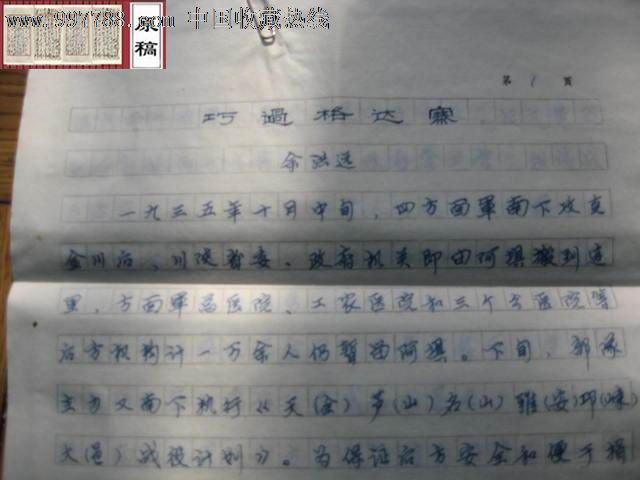 www.997788.com 中国收藏热线
原稿
第 1 页
巧過格达寨
余洪远
一九三五年十月中旬，四方面軍南下攻克
金川后，川陕省委、政府机关即由阿垻搬到这
里，方面軍总医院、工农医院和三个分医院等
后方机构计一万余人仍暂留阿垻。下旬，部队
主力又南下执行《天(全)芦(山)名(山)雅(安)邛(崃)
大(邑)战役计划》。为保证后方安全和便于指